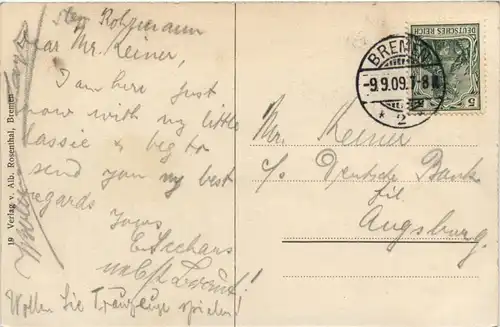 Rohrmann
Dear Mr. Reiner,
I am here just
now with my little
lassie & beg to
send you my best
regards
Yours
u. besten Gruss!
Wollen Sie Trauzeuge spielen!
19 Verlag v. Alb. Rosenthal, Bremen
DEUTSCHES REICH
5 5
BREMEN
-9.9.09.7-8
* 2
Mr. Reiner
c/o Deutsche Bank
fil.
Augsburg.